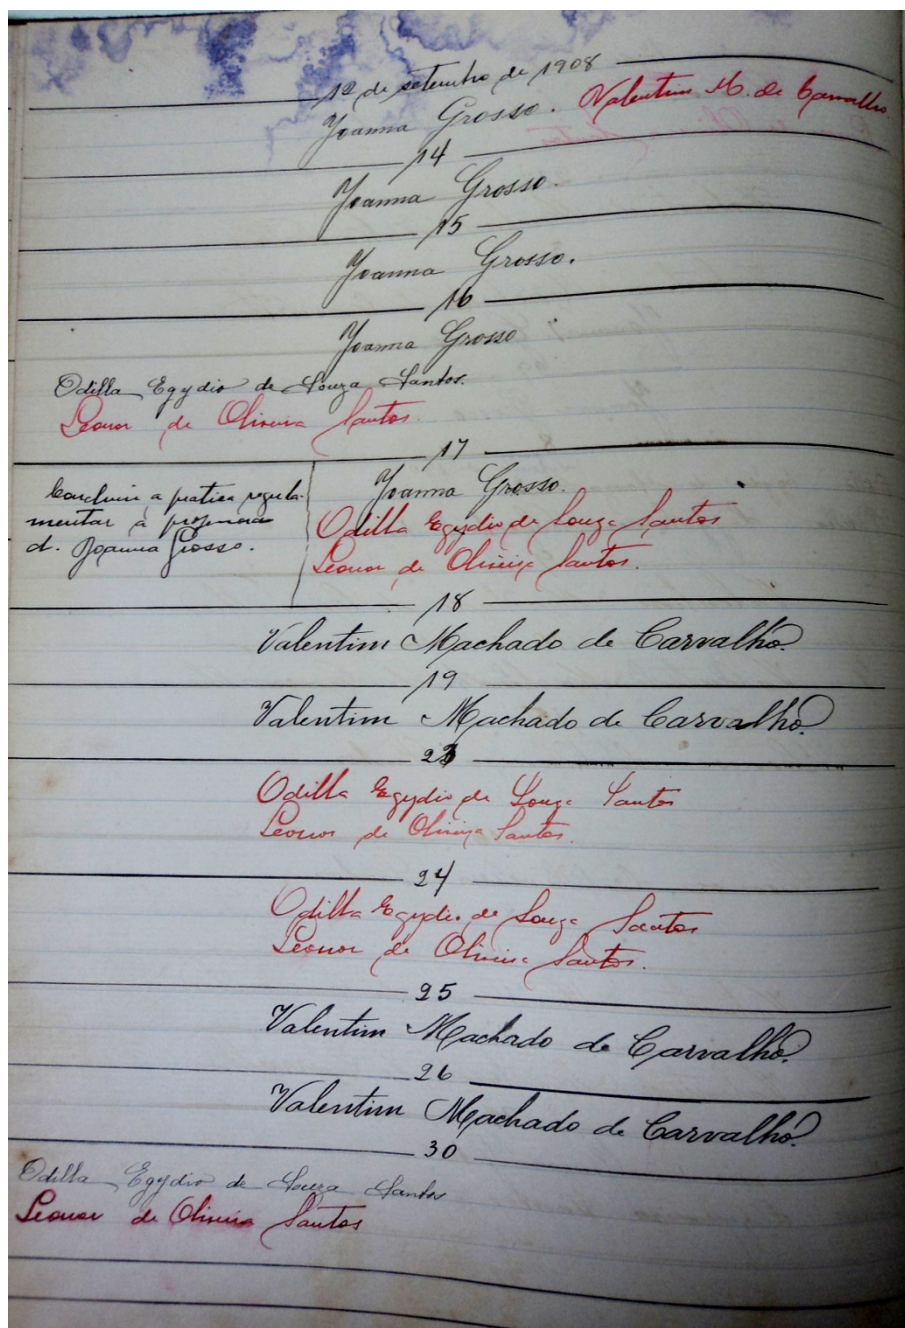 12 de setembro de 1908
Joanna Grosso. Valentim M. de Carvalho.
14
Joanna Grosso.
15
Joanna Grosso.
16
Joanna Grosso
Odilla Egydio de Souza Santos.
Leonor de Oliveira Santos.
17
Concluiu a pratica regula-
mentar a professora
d. Joanna Grosso.
Joanna Grosso.
Odilla Egydio de Souza Santos
Leonor de Oliveira Santos.
18
Valentim Machado de Carvalho.
19
Valentim Machado de Carvalho.
23
Odilla Egydio de Souza Santos
Leonor de Oliveira Santos.
24
Odilla Egydio de Souza Santos
Leonor de Oliveira Santos.
25
Valentim Machado de Carvalho.
26
Valentim Machado de Carvalho.
30
Odilla Egydio de Souza Santos
Leonor de Oliveira Santos